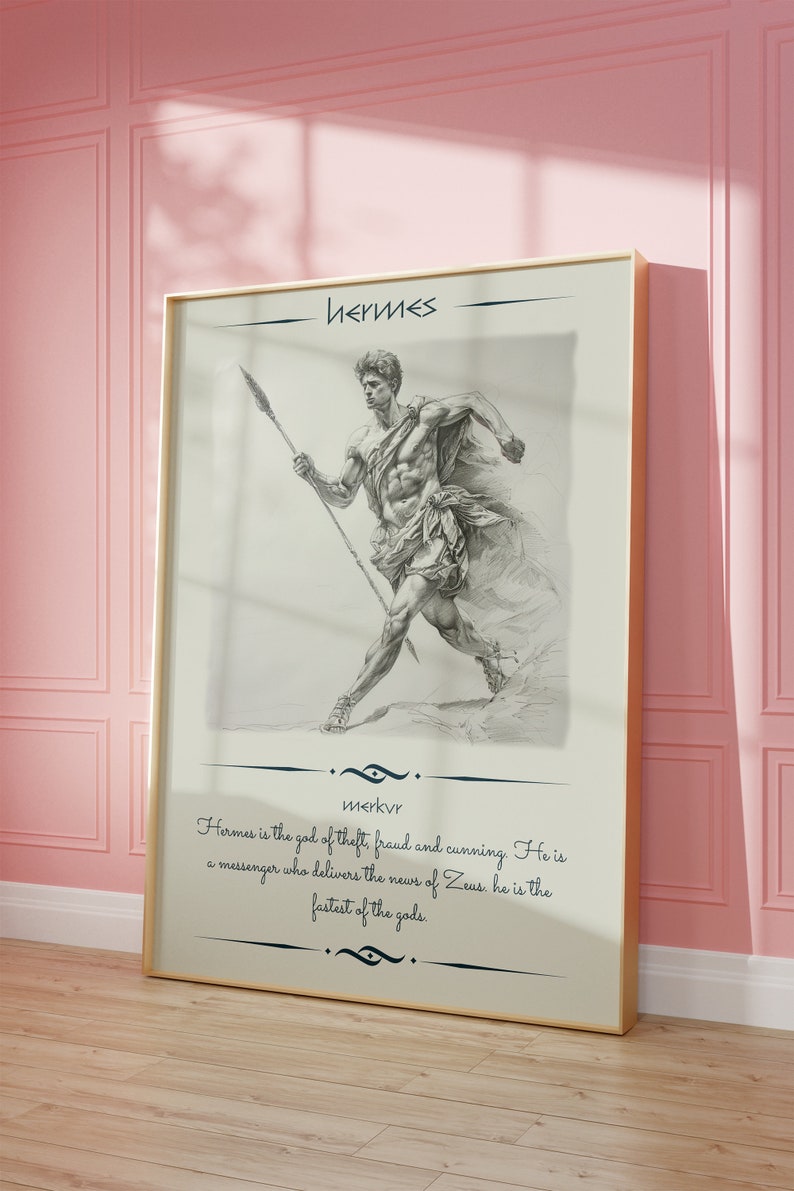 hermes
merkur
Hermes is the god of theft, fraud and cunning. He is
a messenger who delivers the news of Zeus. he is the
fastest of the gods.